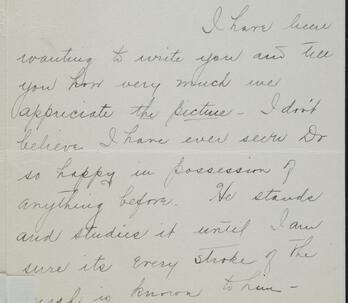 I have been
wanting to write you and tell
you how very much we
appreciate the picture - I don't
believe I have ever seen Dr
so happy in possession of
anything before. He stands
and studies it until I am
sure its every stroke of the
is known to him -